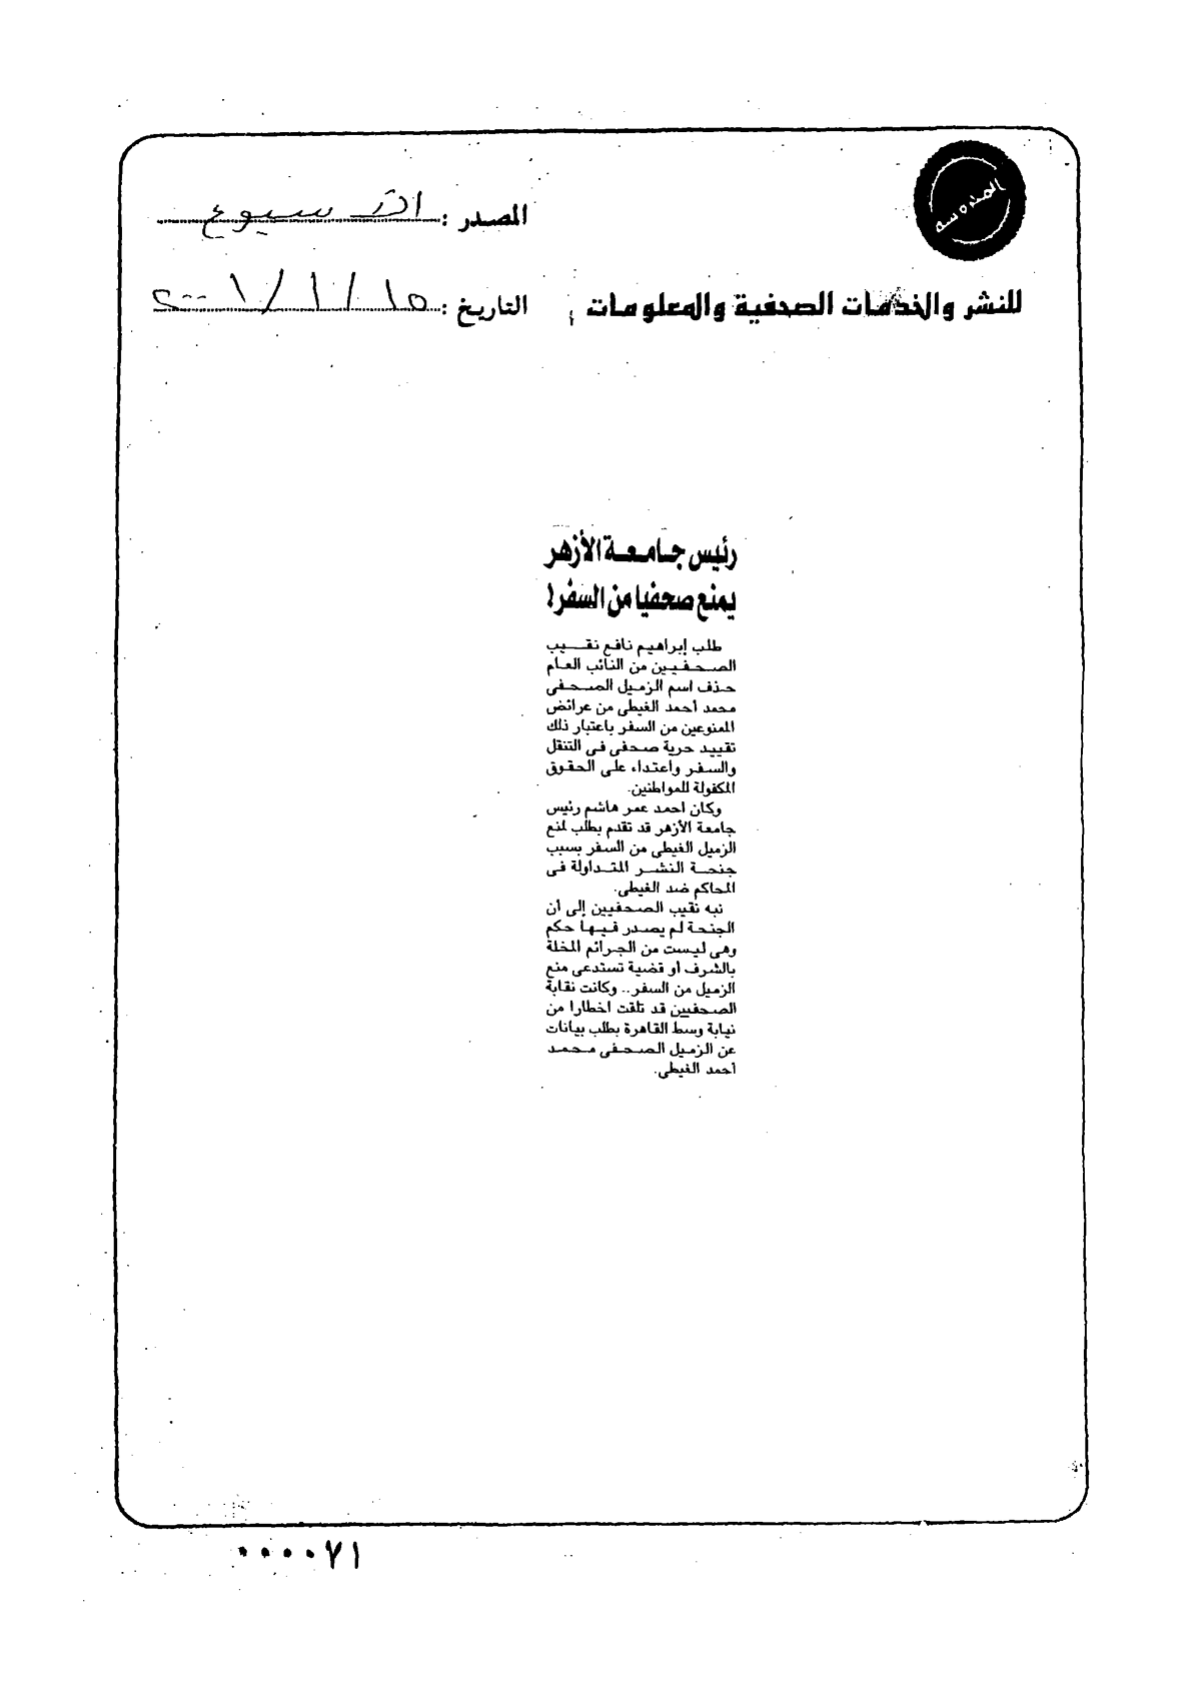 المصدر : الأسبوع
للنشر والخدمات الصحفية والمعلومات
التاريخ : ١٥ / ١ / ٢٠٠١
رئيس جامعة الأزهر
يمنع صحفيا من السفر!
طلب إبراهيم نافع نقيب
الصحفيين من النائب العام
حذف اسم الزميل الصحفى
محمد أحمد الغيطى من عرائض
الممنوعين من السفر باعتبار ذلك
تقييد حرية صحفى فى التنقل
والسفر واعتداء على الحقوق
المكفولة للمواطنين.
وكان احمد عمر هاشم رئيس
جامعة الأزهر قد تقدم بطلب لمنع
الزميل الغيطى من السفر بسبب
جنحة النشر المتداولة فى
المحاكم ضد الغيطى.
نبه نقيب الصحفيين إلى أن
الجنحة لم يصدر فيها حكم
وهى ليست من الجرائم المخلة
بالشرف أو قضية تستدعى منع
الزميل من السفر.. وكانت نقابة
الصحفيين قد تلقت اخطارا من
نيابة وسط القاهرة بطلب بيانات
عن الزميل الصحفى محمد
أحمد الغيطى.
٠٠٠٠٧١